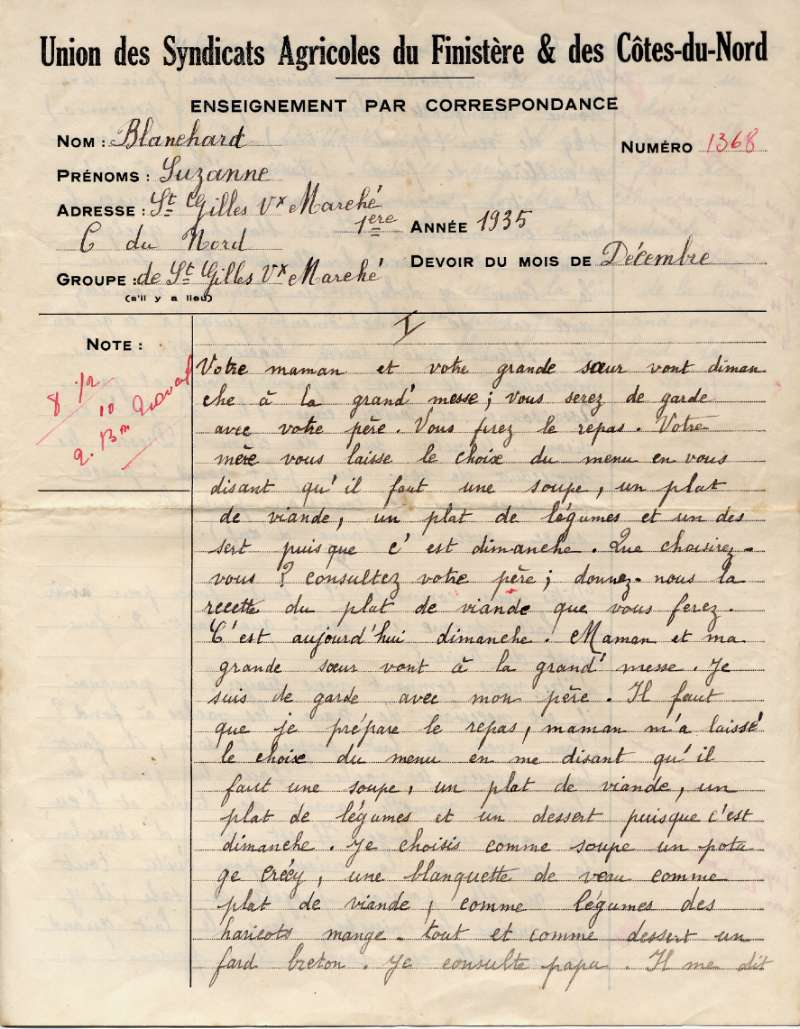 Union des Syndicats Agricoles du Finistère & des Côtes-du-Nord
ENSEIGNEMENT PAR CORRESPONDANCE
NOM : Blanchard
NUMÉRO 1368
PRÉNOMS : Suzanne
ADRESSE : St Gilles Vx Marché
1ère ANNÉE 1935
C du Nord
DEVOIR DU MOIS DE Décembre
GROUPE : de St Gilles Vx Marché
(s'il y a lieu)
NOTE :
8 1/2
10
I
Votre maman et votre grande sœur vont diman
che à la grand' messe ; vous serez de garde
avec votre père. Vous ferez le repas. Votre
mère vous laisse le choix du menu en vous
disant qu'il faut une soupe, un plat
de viande, un plat de légumes et un des
sert puisque c'est dimanche. Que choisirez-
vous ? consultez votre père ; donnez-nous la
recette du plat de viande que vous ferez.
C'est aujourd'hui dimanche. Maman et ma
grande sœur vont à la grand' messe. Je
suis de garde avec mon père. Il faut
que je prépare le repas, maman m'a laissé
le choix du menu en me disant qu'il
faut une soupe, un plat de viande, un
plat de légumes et un dessert puisque c'est
dimanche. Je choisis comme soupe un pota
ge crécy, une blanquette de veau comme
plat de viande, comme légumes des
haricots mange-tout et comme dessert un
fard breton. Je consulte papa. Il me dit